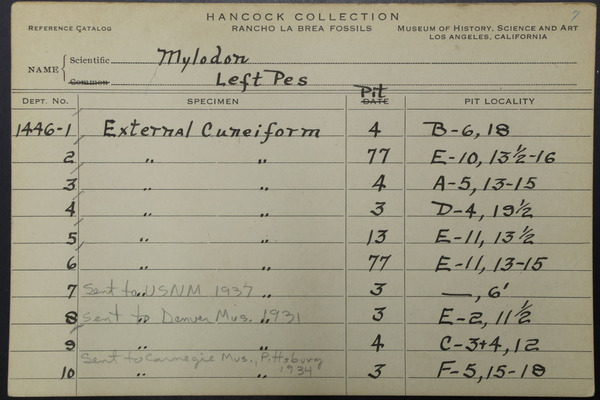 7
HANCOCK COLLECTION
REFERENCE CATALOG RANCHO LA BREA FOSSILS MUSEUM OF HISTORY, SCIENCE AND ART
LOS ANGELES, CALIFORNIA
NAME { Scientific Mylodon
Common Left Pes
Pit
DEPT. NO. SPECIMEN DATE PIT LOCALITY
1446-1 External Cuneiform 4 B-6, 18
2 " " 77 E-10, 13½-16
3 " " 4 A-5, 13-15
4 " " 3 D-4, 19½
5 " " 13 E-11, 13½
6 " " 77 E-11, 13-15
7 Sent to USNM 1937 " " 3 —, 6'
8 Sent to Denver Mus. 1931 " " 3 E-2, 11½
9 " " 4 C-3+4, 12
Sent to Carnegie Mus., Pittsburg
1934
10 " " 3 F-5, 15-18